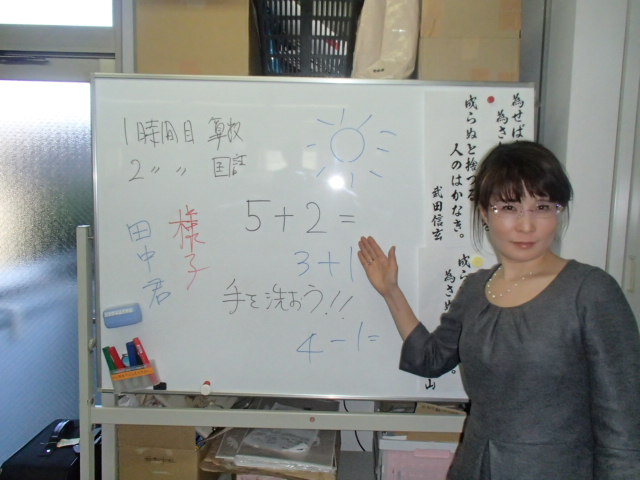 1時間目 算数
2 〃 〃 国語
5+2=
3+1
手を洗おう!!
4-1=
様子
田中君
為せば
為さ
成らぬと捨つる
人のはかなき。
武田信玄
成ら
為さぬ
。
山